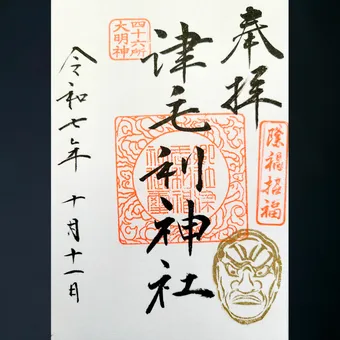 奉拝
四十六所
大明神
津毛利神社
除禍招福
令和七年 十月十一日